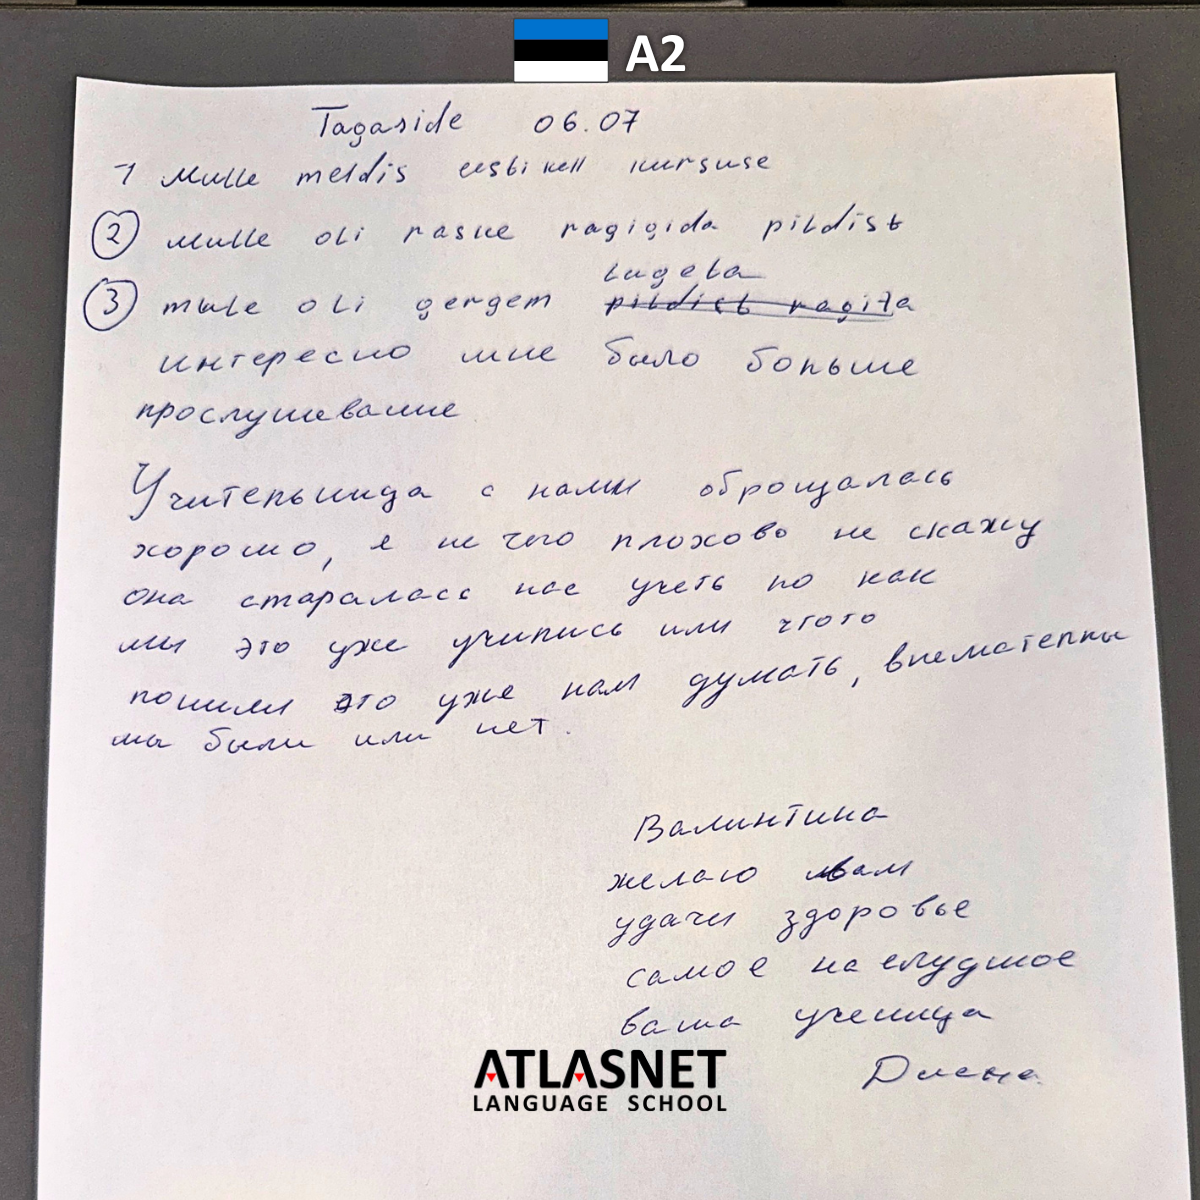 A2
Tagaside 06.07
1 Mulle meldis eesti kell kursuse
2 Mulle oli raske ragigida pildist
lugeba
3 mulle oli gergem pildist ragita
интересно мне было больше
прослушевание
Учительница с нами оброщалась
хорошо, я не чего плохово не скажу
она старалась нас учеть но как
мы это уже учились или чтото
поняли это уже нам думать, внемотельны
мы были или нет.
Валинтина
желаю вам
удачи здоровье
самое на елудшое
ваша ученица
Диана
ATLASNET
LANGUAGE SCHOOL